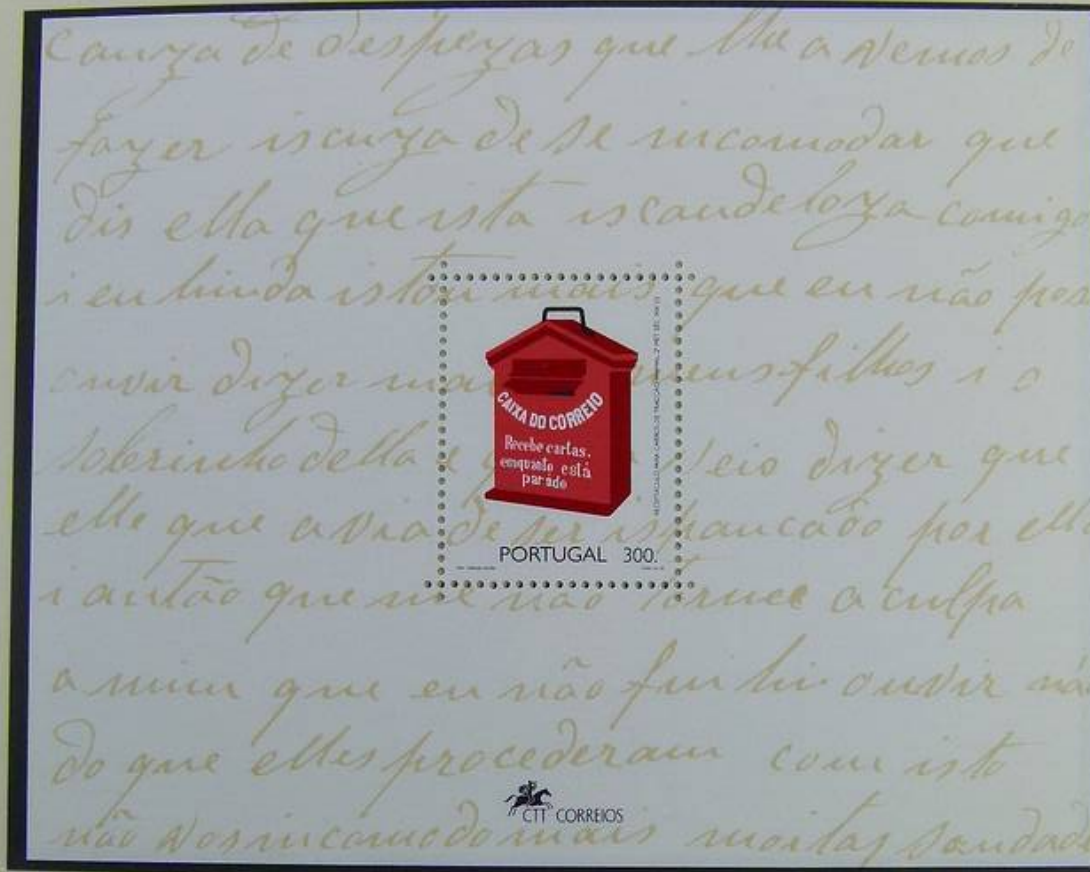 cauza de despezas que lhe avemos de
fazer iscuza de se incomodar que
dis ella que ista iscandeloza comigo
i eu hinda istou mais que eu não pos
ouvir dizer meus filhos i o
sobrinho della e veio dizer que
elle que avia de ser ispancado por elle
i antão que me não a culpa
a mim que eu não fui hi ouvir na
do que elles procederam com isto
não vos incomodo mais moitas saudad
CAIXA DO CORREIO
Recebe cartas,
enquanto está
parado
PORTUGAL 300.
CTT CORREIOS